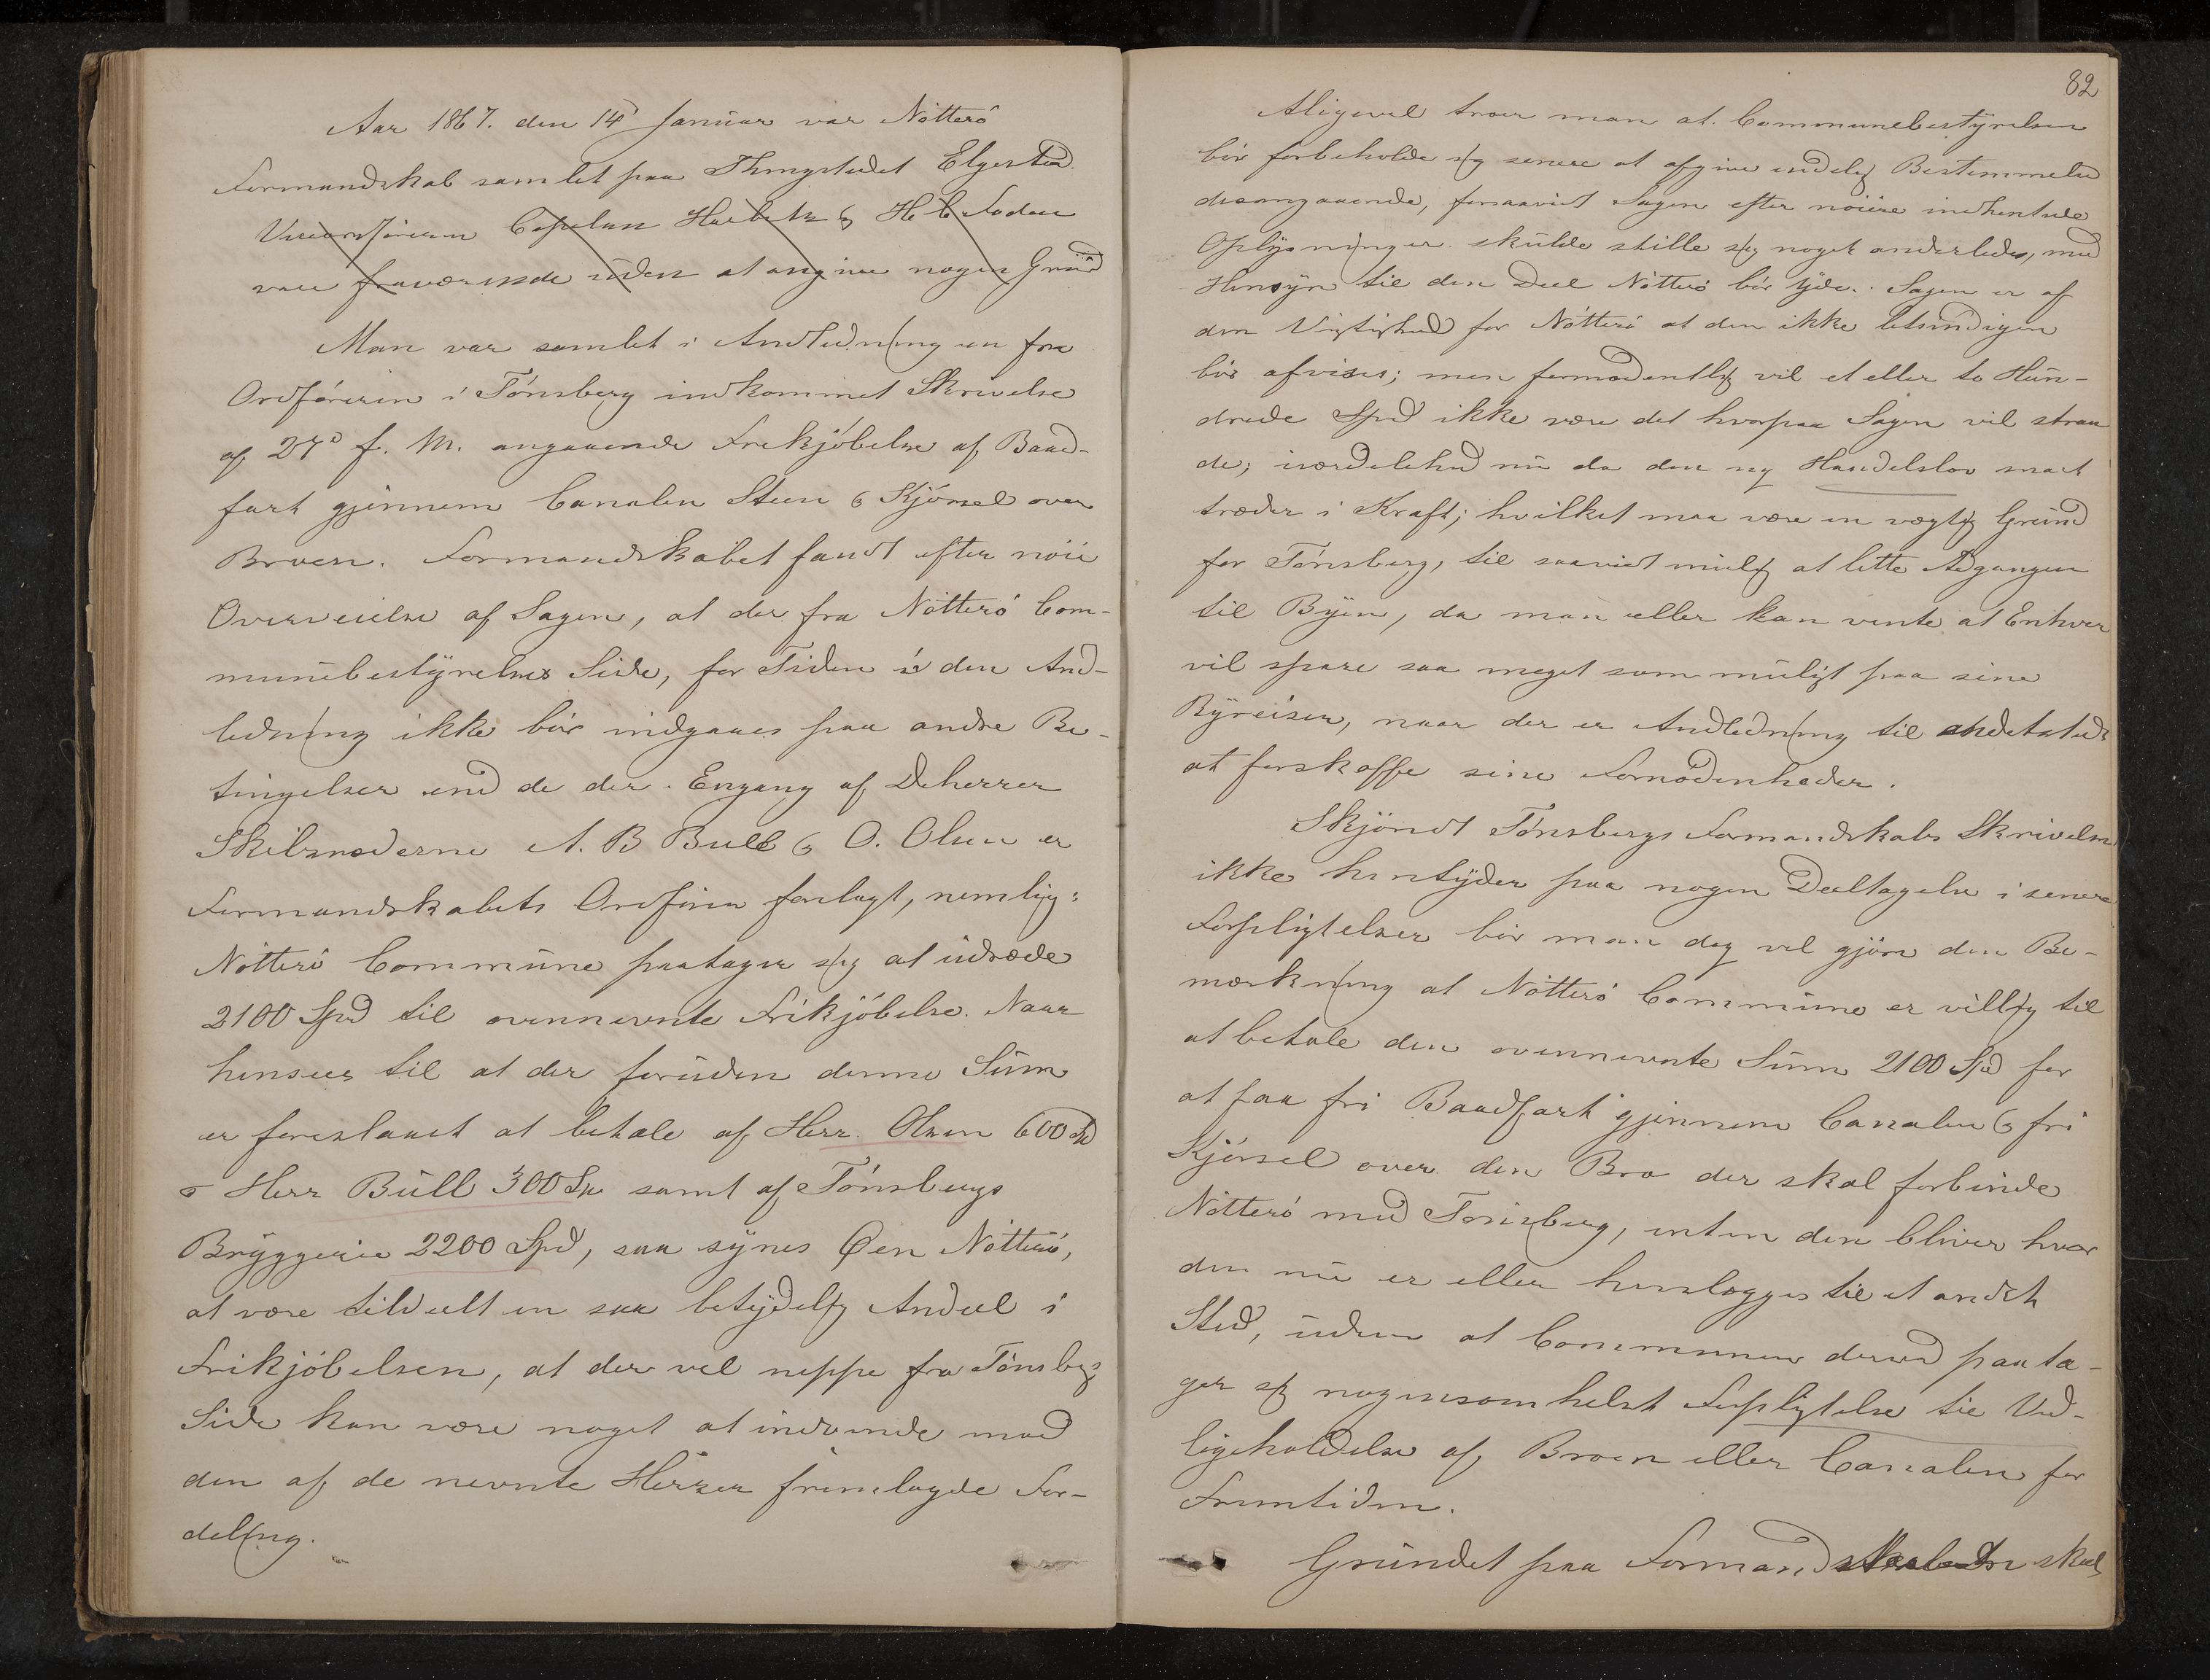 Aar 1867. den 14d Januar var Nötterö
Formandskab samlet paa Thingstedet Elgestad.
Viceordföreren Capelen Holst & H. C. Foden
vare fraværende uden at angive nogen Grund
Man var samlet i Andledning en fra
Ordföreren i Tönsberg indkommet Skrivelse
af 27d f. M. angaaende Frikjöbelse af Baad-
fart gjennem Canalen Steen & Kjörsel over
Broen. Formandskabet fandt efter nöie
Overveielse af Sagen, at der fra Nötterö Com-
munebestyrelses Side, for Tiden i den And-
ledning ikke bör indgaaes paa andre Be-
tingelser end de der Engang af Deherrer
Skibsrederne A. B Bull & O. Olsen er
Formandskabets Ordförer forelagt, nemlig:
Nötterö Commune paatager sig at udrede
2100 Spd til ovennevnte Frikjöbelse. Naar
henseees til at der foruden denne Sum
er foreslaaet at betale af Herr. Olsen 600 Sp
o Herr Bull 300 Sp samt af Tönsbergs
Bryggerie 2200 Spd, saa synes Öen Nötterö,
at være tildeelt en saa betydelig Andeel i
Frikjöbelsen, at der vel neppe fra Tönsbergs
Side kan være noget at indvende mod
den af de nevnte Herrer fremlagde For-
deling.
82
Aligevel troer man at Communebestyrelsen
bör forbeholde sig senere at afgive endelig Bestemmelse
desangaaende, forsaavidt Sagen efter nöiere indhentede
Oplysninger skulde stille sig noget anderledes, med
Hensyn til den Deel Nötterö bör yde. Sagen er af
den Vigtighed for Nötterö at den ikke letsindigen
bör afvises; men formodentlig vil et eller to Hun-
drede Spd ikke være det hvorpaa Sagen vil stran
de; isærdeleshed nu da den ny Handelslov snart
træder i Kraft; hvilket maa være en vægtig Grund
for Tönsberg, til saavidt mulig at lette Adgangen
til Byen, da man eller kan vente at Enhver
vil spare saa meget som muligt paa sine
Byreiser, naar der er Andledning til andetsteds
at forskaffe sine Fornödenheder.
Skjöndt Tönsbergs Formandskabs Skrivelse
ikke hentyder paa nogen Deeltagelse i senere
Forpligtelser bör man dog vel gjöre den Be-
mærkning at Nötterö Commune er villig til
at betale den ovennevnte Sum 2100 Spd for
at faa fri Baadfart gjennem Canalen & fri
Kjörsel over den Bro der skal forbinde
Nötterö med Tönsberg, enten den bliver hvor
den nu er eller henlægges til et andet
Sted, uden at Communen derved paata-
ger sig nogensomhelst Forpligtelse til Ved-
ligeholdelse af Broen eller Canalen for
Fremtiden.
Grundet paa Formandskabets skal